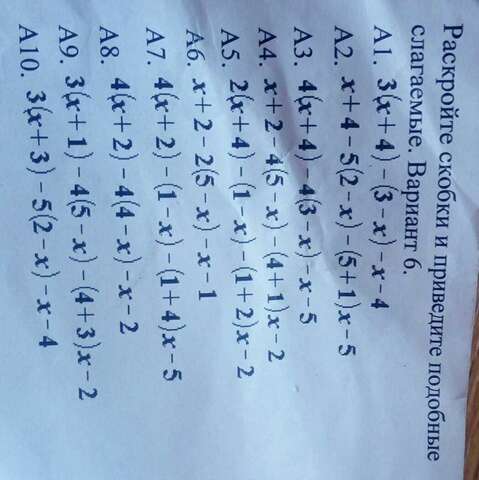 Раскройте скобки и приведите подобные
слагаемые. Вариант 6.
А1. 3(x+4)-(3-x)-x-4
А2. x+4-5(2-x)-(5+1)x-5
А3. 4(x+4)-4(3-x)-x-5
А4. x+2-4(5-x)-(4+1)x-2
А5. 2(x+4)-(1-x)-(1+2)x-2
А6. x+2-2(5-x)-x-1
А7. 4(x+2)-(1-x)-(1+4)x-5
А8. 4(x+2)-4(4-x)-x-2
А9. 3(x+1)-4(5-x)-(4+3)x-2
А10. 3(x+3)-5(2-x)-x-4